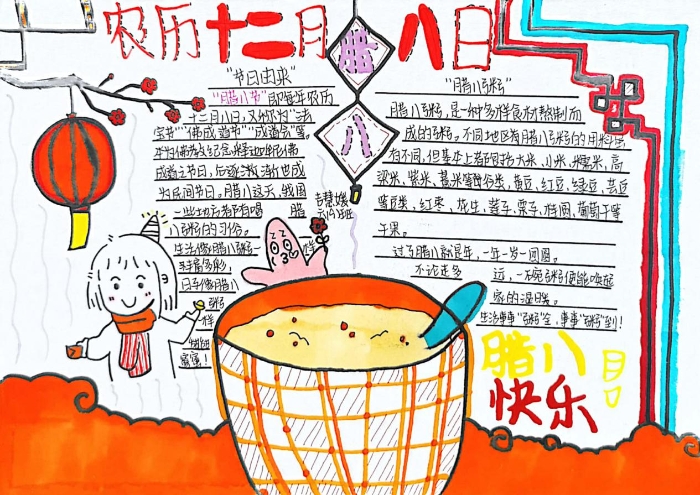 农历十二月 八日
腊
八
"节日由来"
"腊八节"即每年农历
十二月八日，又称为"法
宝节""佛成道节""成道会"等
本为佛教纪念释迦牟尼佛
成道之节日，后逐渐也成
为民间节日。腊八这天，我国
一些地方都有喝 腊
八粥的习俗。
生活像腊八粥一 样
丰富多彩，
日子像腊八
粥一
样
甜甜
蜜蜜！
六(4)班
"腊八粥"
腊八粥，是一种多样食材熬制而
成的粥。不同地区腊八粥的用料虽
有不同，但基本上都包括大米、小米、糯米、高
粱米、紫米、薏米等谷类，黄豆、红豆、绿豆、芸豆
等豆类，红枣、花生、莲子、栗子、桂圆、葡萄干等
干果。
过了腊八就是年，一年一岁一团圆。
不论走多 远，一碗粥便能唤起
家的温暖。
生活事事"粥"全，事事"粥"到！
腊八
日
快乐